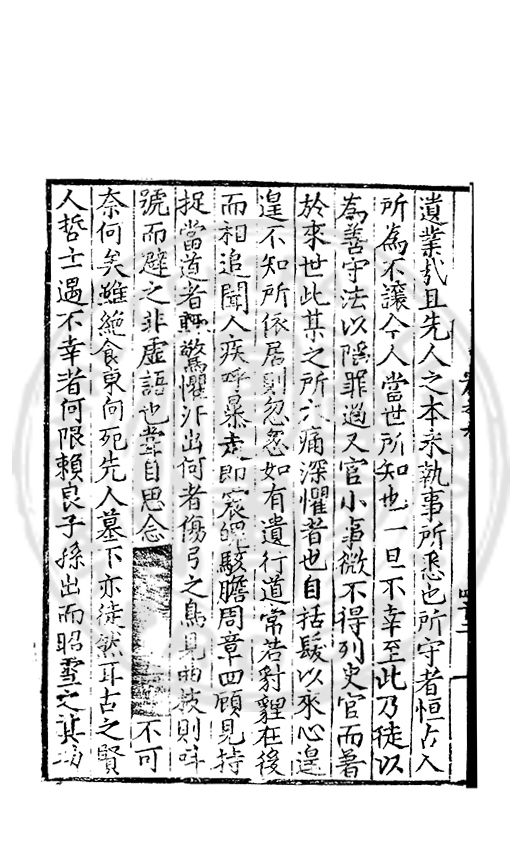 遺業哉且先人之本末執事所悉也所守者恒占人
所為不讓今人當世所知也一旦不幸至此乃徒以
為善守法以隱罪過又官小事微不得列史官而著
於來世此某之所大痛深懼者也自括髮以來心遑
遑不知所依居則忽忽如有遺行道常若豺貍在後
而相追聞人疾呼暴走即震駭膽周章四顧見持
捉當道者輒驚懼汗出何者傷弓之鳥見曲枝則叫
號而避之非虛語也嘗自思念不可
奈何矣雖絕食東向死先人墓下亦徒然耳古之賢
人哲士遇不幸者何限賴良子孫出而昭雪之其功